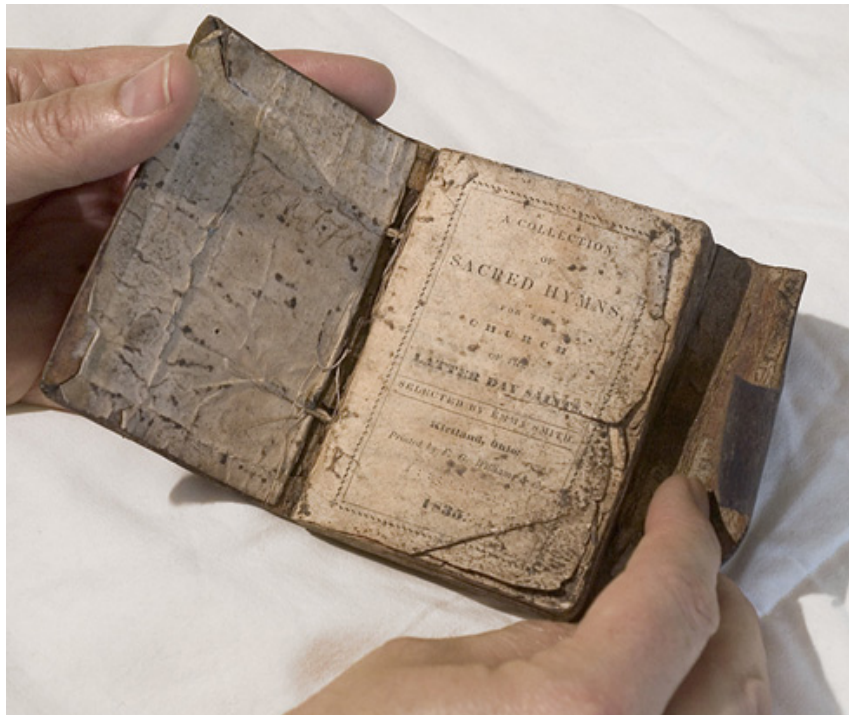 A COLLECTION
OF
SACRED HYMNS,
FOR THE
CHURCH
OF THE
LATTER DAY SAINTS.
SELECTED BY EMMA SMITH.
Kirtland, Ohio:
Printed by F. G. Williams & co.
1835.